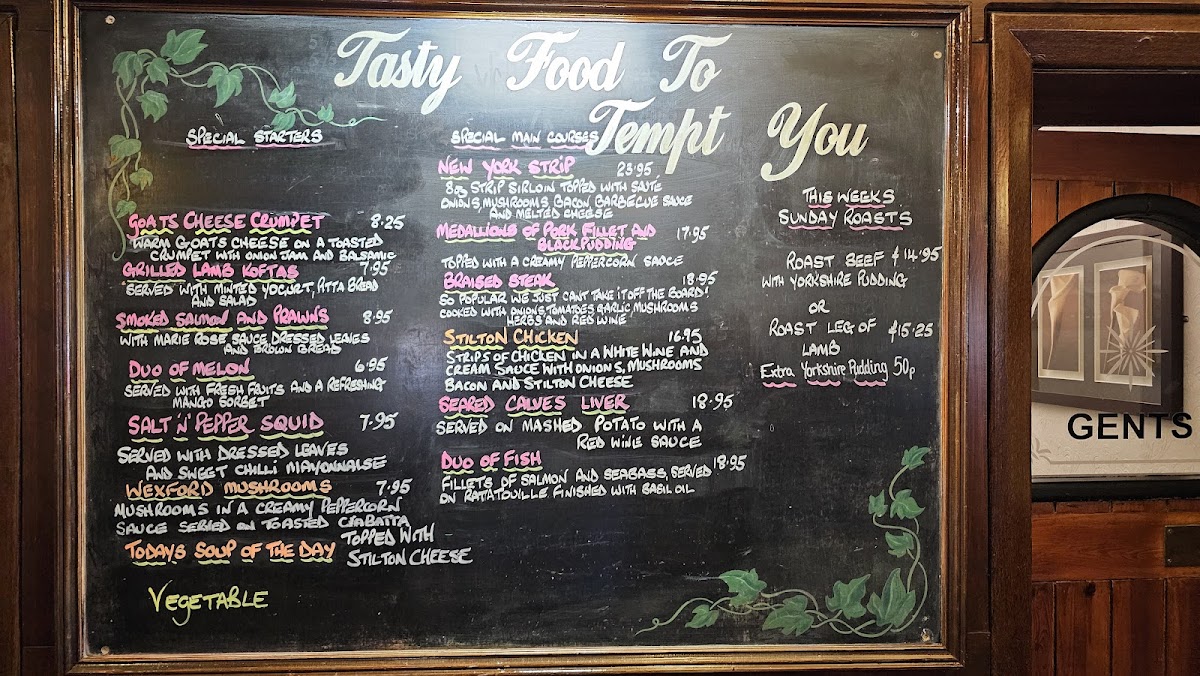 Tasty Food To
Tempt You
SPECIAL STARTERS
GOATS CHEESE CRUMPET 8.25
WARM GOATS CHEESE ON A TOASTED
CRUMPET WITH ONION JAM AND BALSAMIC
GRILLED LAMB KOFTAS 7.95
SERVED WITH MINTED YOGURT, PITTA BREAD
AND SALAD
SMOKED SALMON AND PRAWNS 8.95
WITH MARIE ROSE SAUCE DRESSED LEAVES
AND BROWN BREAD
DUO OF MELON 6.95
SERVED WITH FRESH FRUITS AND A REFRESHING
MANGO SORBET
SALT 'N' PEPPER SQUID 7.95
SERVED WITH DRESSED LEAVES
AND SWEET CHILLI MAYONNAISE
WEXFORD MUSHROOMS 7.95
MUSHROOMS IN A CREAMY PEPPERCORN
SAUCE SERVED ON TOASTED CIABATTA
TOPPED WITH
STILTON CHEESE
TODAYS SOUP OF THE DAY
VEGETABLE
SPECIAL MAIN COURSES
NEW YORK STRIP 23.95
8oz STRIP SIRLOIN TOPPED WITH SAUTE
ONIONS, MUSHROOMS, BACON, BARBECUE SAUCE
AND MELTED CHEESE
MEDALLIONS OF PORK FILLET AND
BLACKPUDDING 17.95
TOPPED WITH A CREAMY PEPPERCORN SAUCE
BRAISED STEAK 18.95
SO POPULAR WE JUST CANT TAKE IT OFF THE BOARD!
COOKED WITH ONIONS, TOMATOES, GARLIC, MUSHROOMS
HERBS AND RED WINE
STILTON CHICKEN 16.95
STRIPS OF CHICKEN IN A WHITE WINE AND
CREAM SAUCE WITH ONIONS, MUSHROOMS
BACON AND STILTON CHEESE
SEARED CALVES LIVER 18.95
SERVED ON MASHED POTATO WITH A
RED WINE SAUCE
DUO OF FISH 18.95
FILLETS OF SALMON AND SEABASS, SERVED
ON RATATOUILLE FINISHED WITH BASIL OIL
THIS WEEKS
SUNDAY ROASTS
ROAST BEEF £14.95
WITH YORKSHIRE PUDDING
OR
ROAST LEG OF £15.25
LAMB
Extra Yorkshire Pudding 50p
GENTS